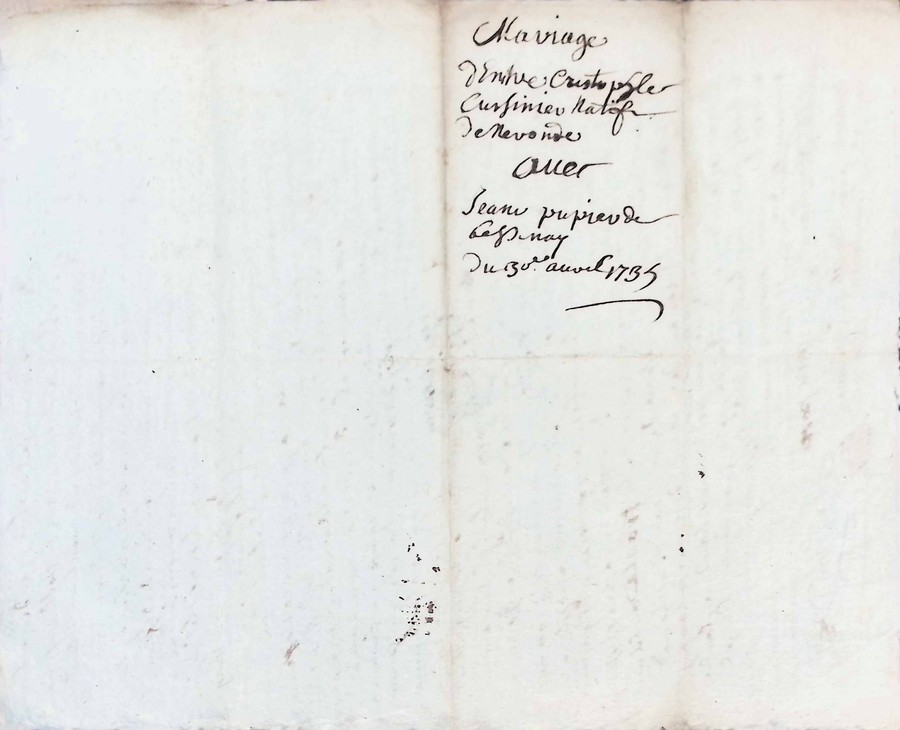 Mariage
d'Entre Cristophle
Cussinier Natif
de Nevonde
Avec
Jeane pupier de
bessenay
Du 30e avril 1735